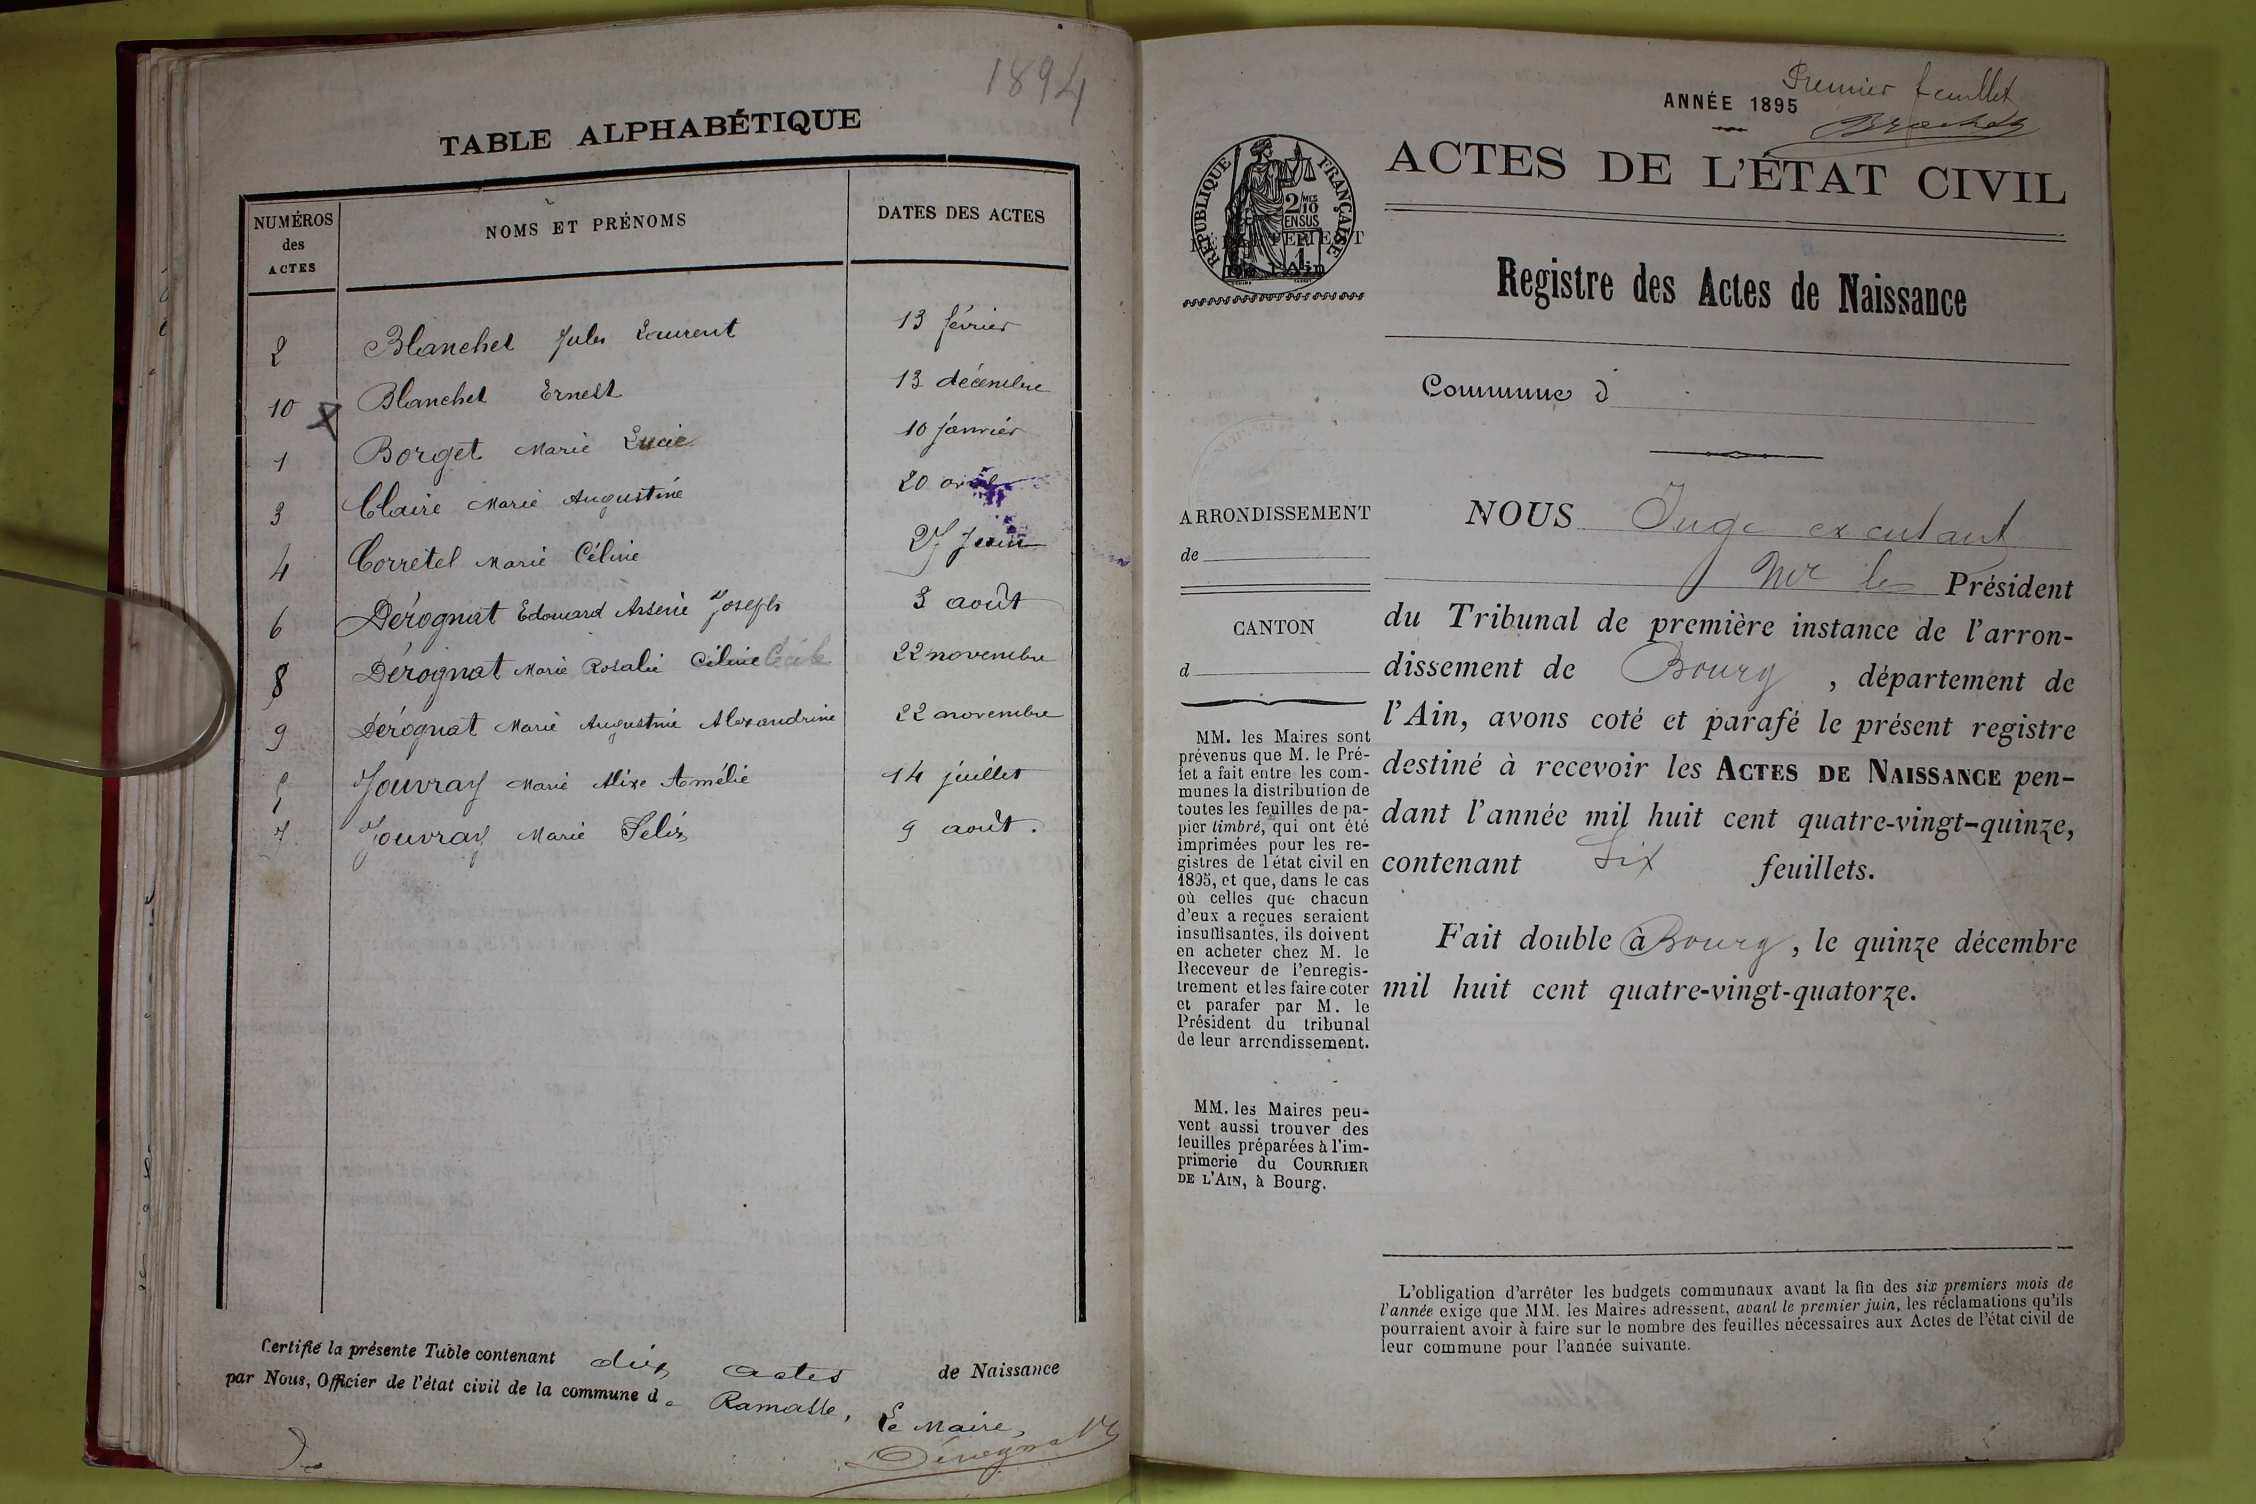 1894
TABLE ALPHABÉTIQUE
NUMÉROS des ACTES NOMS ET PRÉNOMS DATES DES ACTES
2 Blanchet Jules Laurent 13 février
10 Blanchet Ernest 13 décembre
1 Borget Marie Lucie 10 janvier
3 Claire Marie Augustine 20 avril
4 Corretel Marie Céline 27 Juin
6 Dérognat Edouard Arsène Joseph 3 août
8 Dérognat Marie Rosalie Céline Cécile 22 novembre
9 Dérognat Marie Augustine Alexandrine 22 novembre
5 Jouvray Marie Alixe Amélie 14 juillet
7 Jouvray Marie Félix 9 août.
Certifié la présente Table contenant dix actes de Naissance
par Nous, Officier de l'état civil de la commune de Ramasse,
Le Maire,
Dérognat
Premier feuillet
ANNÉE 1895
RÉPUBLIQUE FRANÇAISE
2/10 EN SUS
ACTES DE L'ÉTAT CIVIL
DÉPARTEMENT
De l'Ain
Registre des Actes de Naissance
Commune d
ARRONDISSEMENT
de
CANTON
d
MM. les Maires sont
prévenus que M. le Pré-
fet a fait entre les com-
munes la distribution de
toutes les feuilles de pa-
pier timbré, qui ont été
imprimées pour les re-
gistres de l'état civil en
1895, et que, dans le cas
où celles que chacun
d'eux a reçues seraient
insuffisantes, ils doivent
en acheter chez M. le
Receveur de l'enregis-
trement et les faire coter
et parafer par M. le
Président du tribunal
de leur arrondissement.
MM. les Maires peu-
vent aussi trouver des
feuilles préparées à l'im-
primerie du COURRIER
DE L'AIN, à Bourg.
NOUS Juge
Mr le Président
du Tribunal de première instance de l'arron-
dissement de Bourg, département de
l'Ain, avons coté et parafé le présent registre
destiné à recevoir les ACTES DE NAISSANCE pen-
dant l'année mil huit cent quatre-vingt-quinze,
contenant Six feuillets.
Fait double à Bourg, le quinze décembre
mil huit cent quatre-vingt-quatorze.
L'obligation d'arrêter les budgets communaux avant la fin des six premiers mois de
l'année exige que MM. les Maires adressent, avant le premier juin, les réclamations qu'ils
pourraient avoir à faire sur le nombre des feuilles nécessaires aux Actes de l'état civil de
leur commune pour l'année suivante.